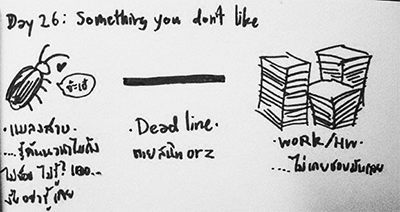 Day 26: Something you don't like
จ๊ะเอ๋
· แมลงสาบ ·
....รู้ตั้นนานไปถึง
ไม่ชอบ ไม่รู้? เออ...
ไม่อยากรู้เลย
· Dead line ·
ตายสนิท orz
· WORK/HW ·
...ไม่เคยชอบมันเลย